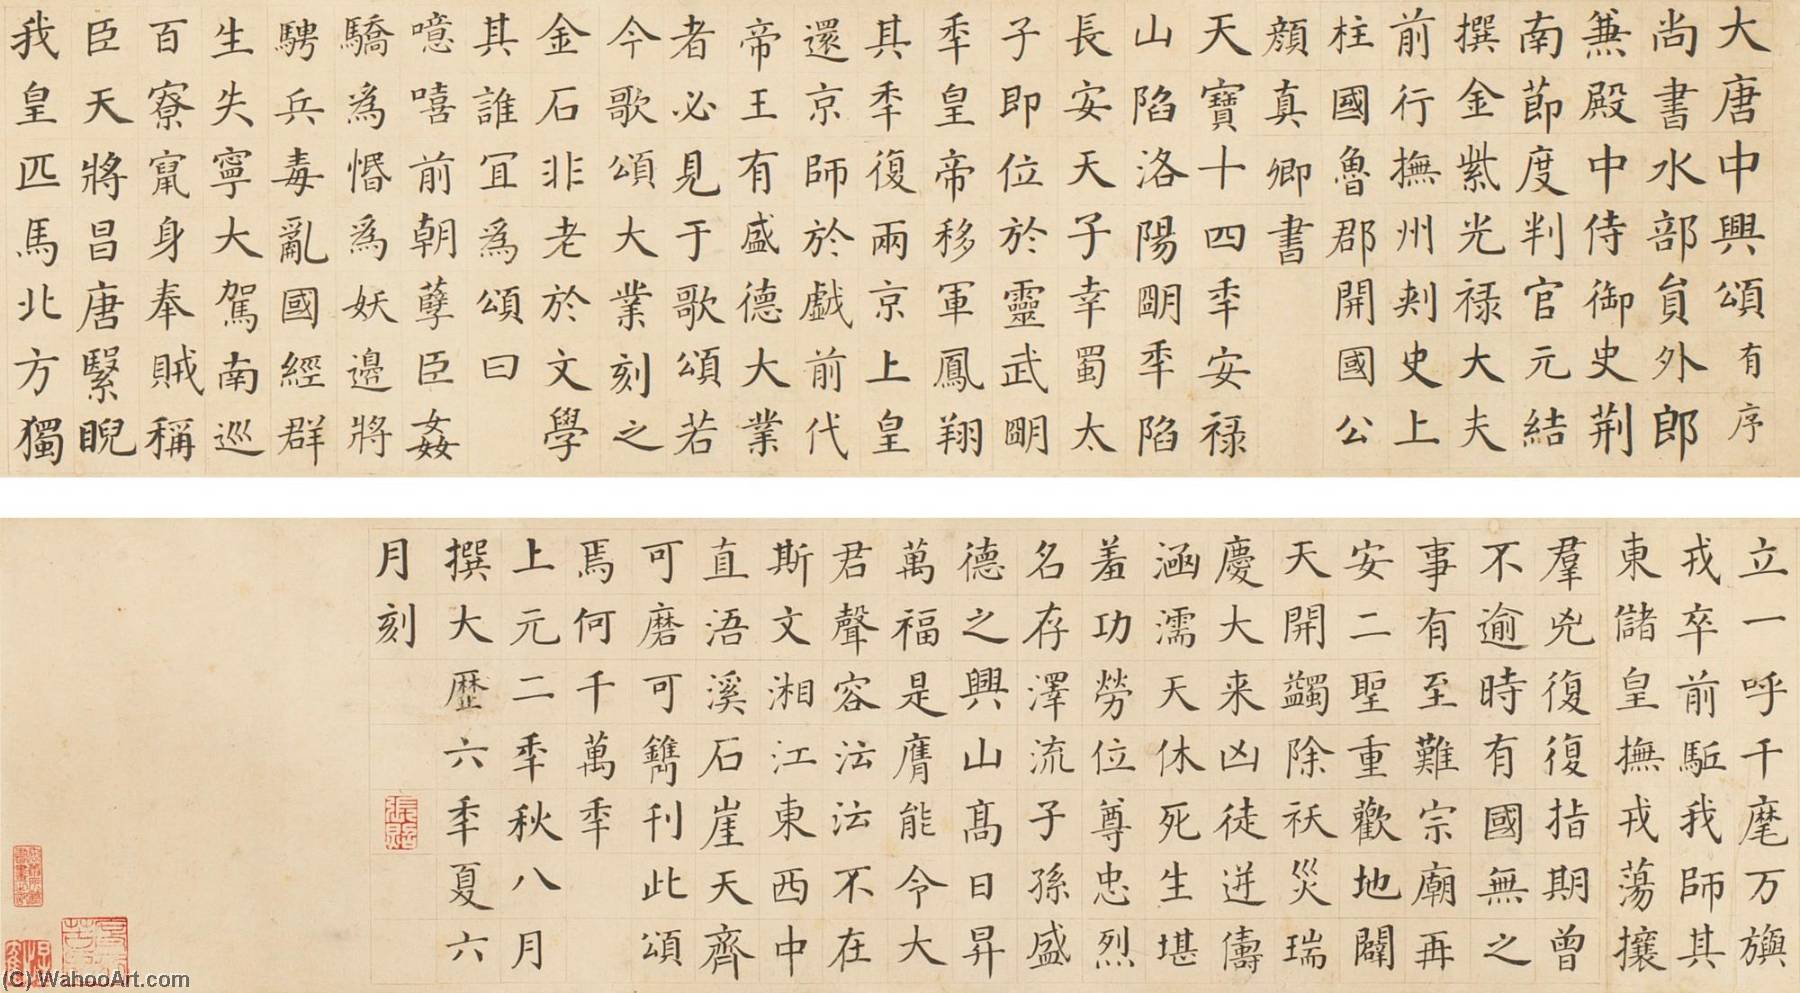 大唐中興頌有序
尚書水部貟外郎
兼殿中侍御史荆
南節度判官元結
撰金紫光禄大夫
前行撫州刾史上
柱國魯郡開國公
顔真卿書
天寶十四秊安禄
山陷洛陽朙秊陷
長安天子幸蜀太
子即位於靈武朙
秊皇帝移軍鳳翔
其秊復兩京上皇
還京師於戯前代
帝王有盛德大業
者必見于歌頌若
今歌頌大業刻之
金石非老於文學
其誰冝爲頌曰
噫嘻前朝孽臣姦
驕爲惽爲妖邊將
騁兵毒亂國經群
生失寧大駕南巡
百寮竄身奉賊稱
臣天將昌唐繄睨
我皇匹馬北方獨
立一呼千麾万旟
戎卒前駈我師其
東儲皇撫戎蕩攘
羣兇復復指期曾
不逾時有國無之
事有至難宗廟再
安二聖重歡地闢
天開蠲除祅災瑞
慶大来凶徒迸儔
涵濡天休死生堪
羞功勞位尊忠烈
名存澤流子孫盛
德之興山髙日昇
萬福是膺能令大
君聲容沄沄不在
斯文湘江東西中
直浯溪石崖天齊
可磨可鐫刊此頌
焉何千萬秊
上元二秊秋八月
撰大歷六秊夏六
月刻
(C) WahooArt.com